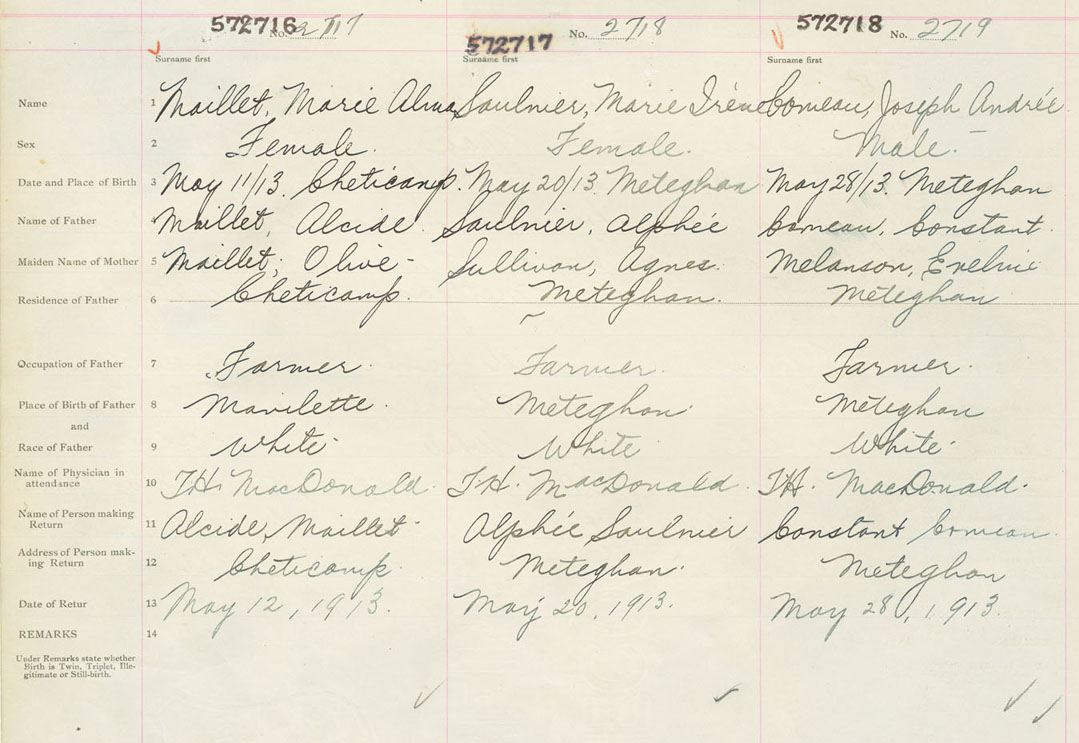 572716 No. 2717 572717 No. 2718 572718 No. 2719
Surname first Surname first Surname first
Name 1 Maillet, Marie Alma Saulnier, Marie Iréne Comeau, Joseph Andrée
Sex 2 Female. Female. Male.
Date and Place of Birth 3 May 11/13. Cheticamp. May 20/13. Meteghan May 28/13. Meteghan
Name of Father 4 Maillet, Alcide. Saulnier, Alphée Comeau, Constant.
Maiden Name of Mother 5 Maillet, Olive- Sullivan, Agnes. Melanson, Eveline
Residence of Father 6 Cheticamp. Meteghan. Meteghan
Occupation of Father 7 Farmer. Farmer. Farmer.
Place of Birth of Father 8 Mavilette. Meteghan. Meteghan
and
Race of Father 9 White White White
Name of Physician in
attendance 10 T.H. MacDonald. T.H. MacDonald. T.H. MacDonald.
Name of Person making
Return 11 Alcide Maillet Alphée Saulnier Constant Comeau.
Address of Person mak-
ing Return 12 Cheticamp. Meteghan. Meteghan
Date of Retur 13 May 12, 1913. May 20, 1913. May 28, 1913.
REMARKS 14
Under Remarks state whether
Birth is Twin, Triplet, Ille-
gitimate or Still-birth.